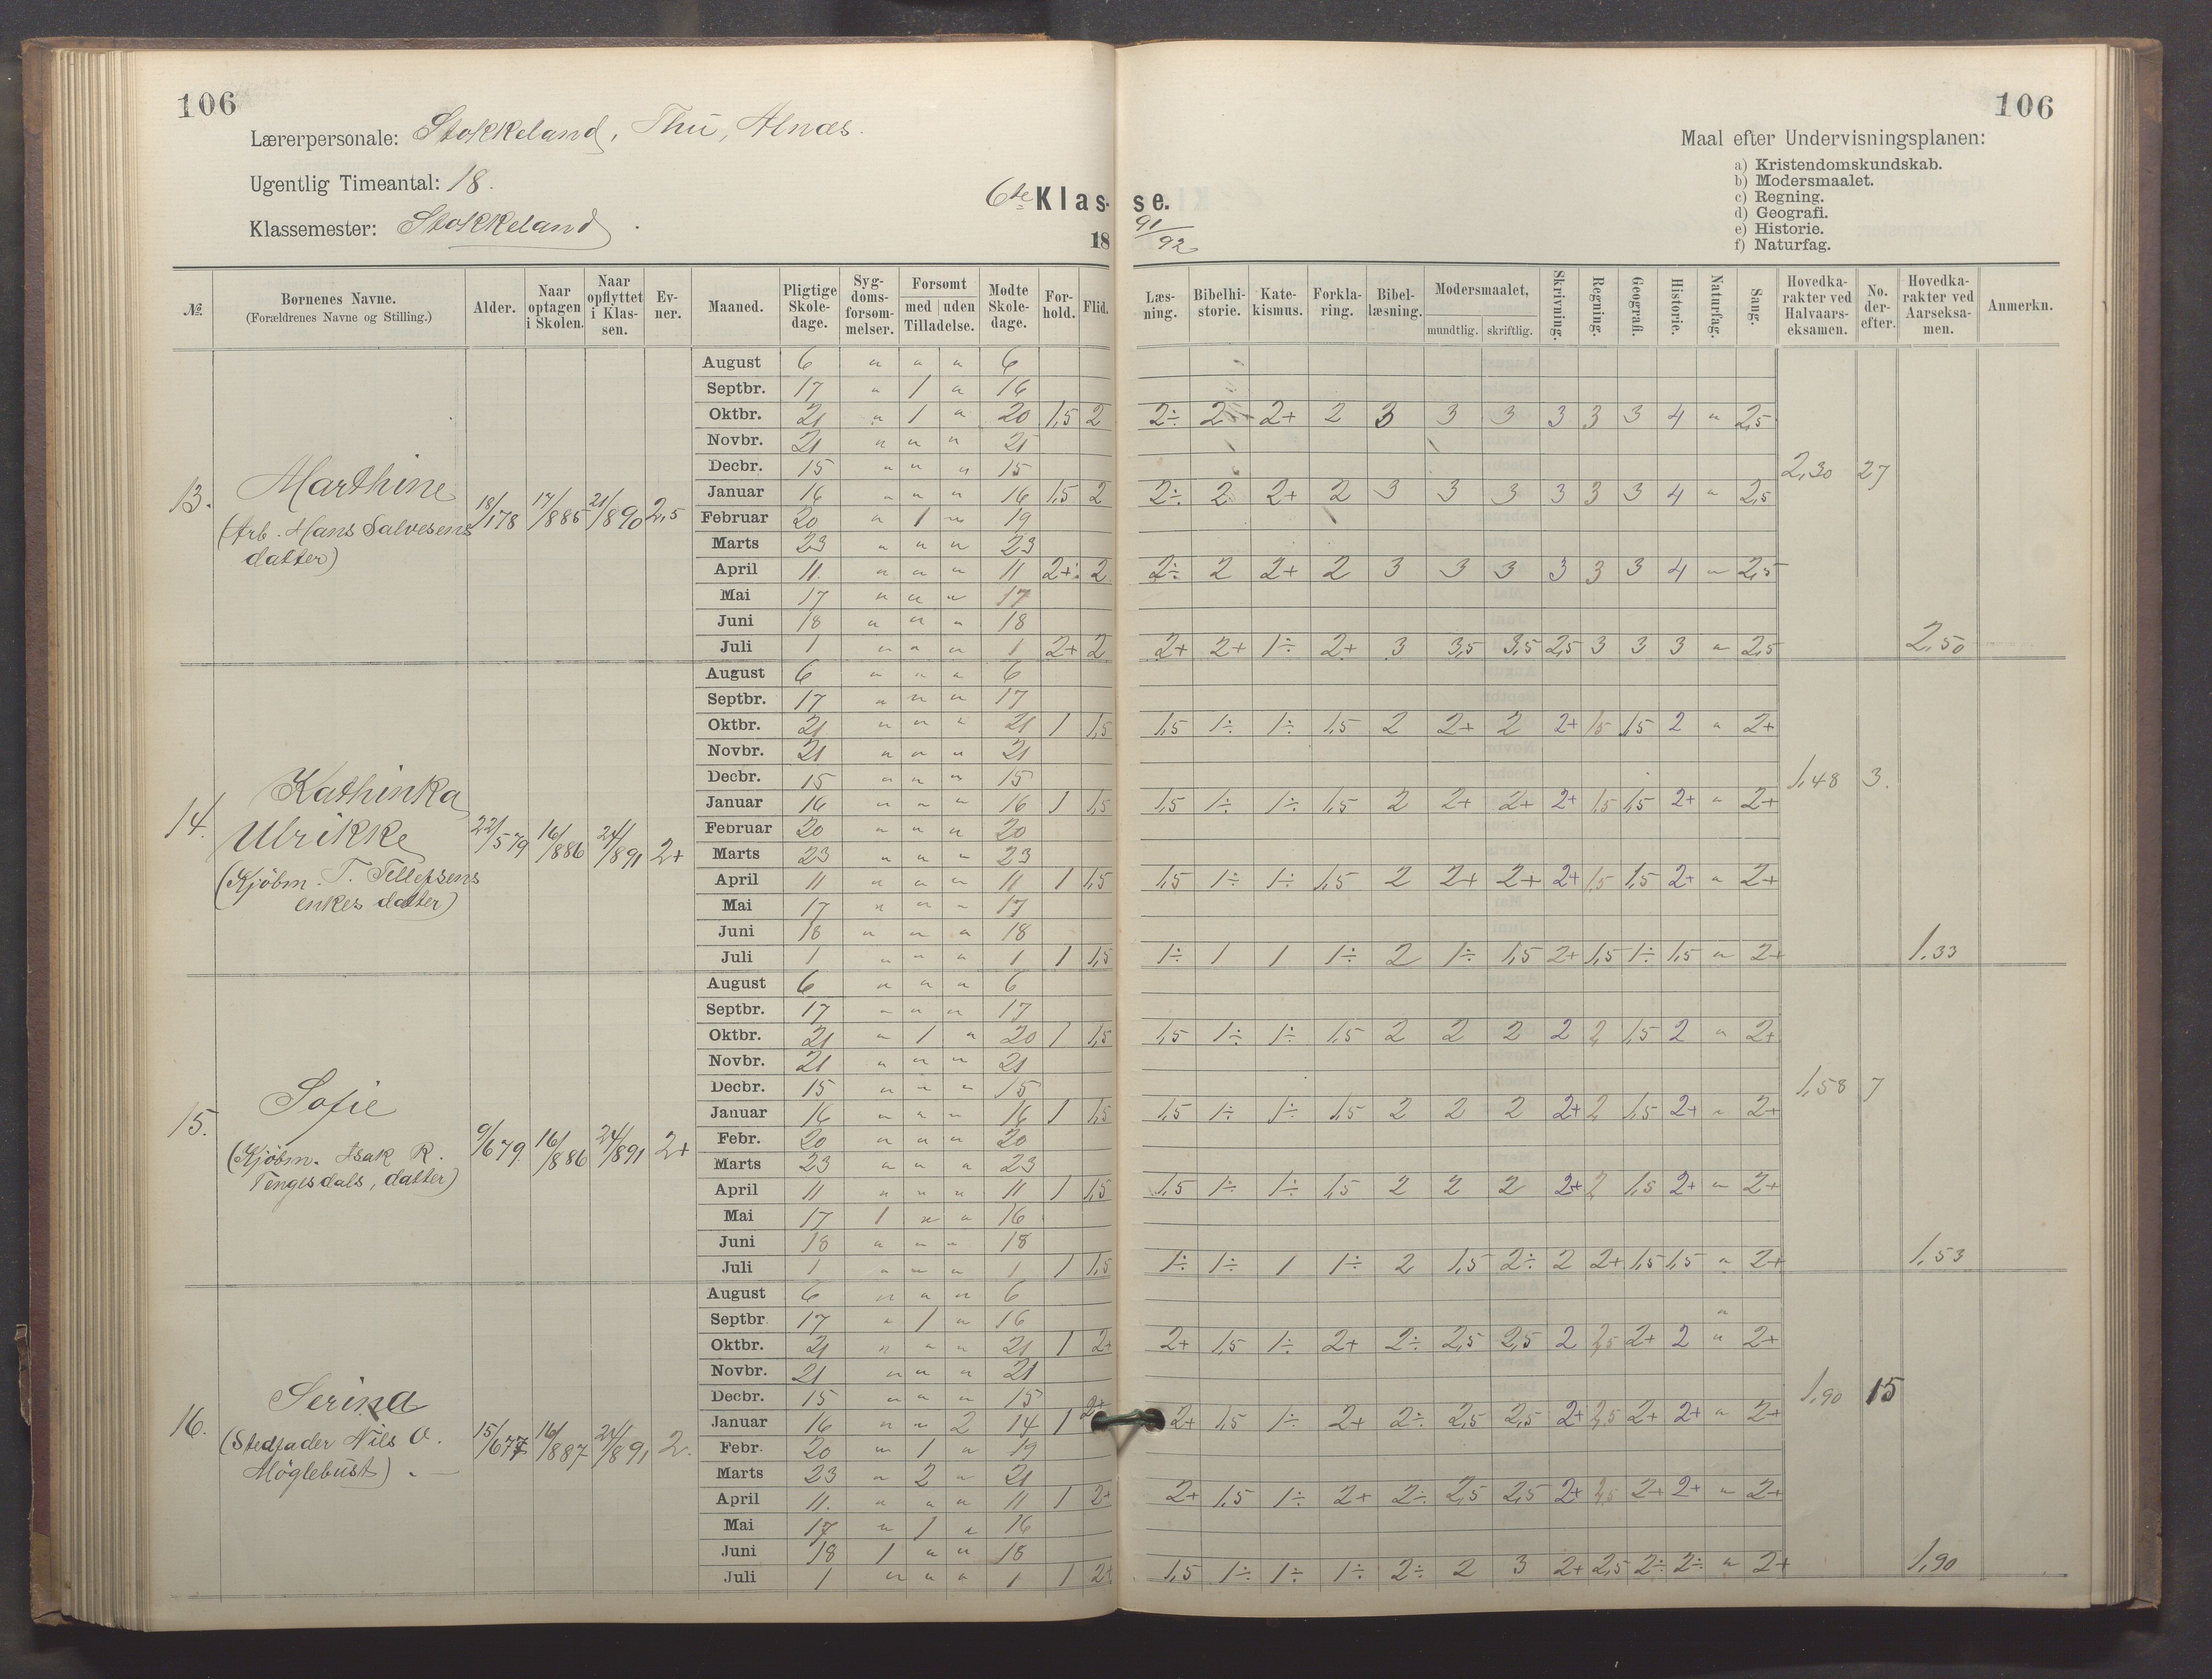 106
106
Lærerpersonale: Stokkeland, Thu, Alnæs.
Ugentlig Timeantal: 18.
Klassemester: Stokkeland
6te Klasse.
18 91/92
Maal efter Undervisningsplanen:
a) Kristendomskundskab.
b) Modersmaalet.
c) Regning.
d) Geografi.
e) Historie.
f) Naturfag.
№ Bornenes Navne. (Forældrenes Navne og Stilling.) Alder. Naar optagen i Skolen. Naar opflyttet i Klassen. Evner. Maaned. Pligtige Skoledage. Sygdomsforsømmelser. Forsømt med uden Tilladelse. Mødte Skoledage. Forhold. Flid. Læsning. Bibelhistorie. Katekismus. Forklaring. Bibellæsning. Modersmaalet, mundtlig. skriftlig. Skrivning. Regning. Geografi. Historie. Naturfag. Sang. Hovedkarakter ved Halvaarseksamen. No. derefter. Hovedkarakter ved Aarseksamen. Anmerkn.
13. Marthine (Arb. Hans Salvesens datter) 18/178 17/885 21/890 2,5
August 6 " " " 6
Septbr. 17 " 1 " 16
Oktbr. 21 " 1 " 20 1,5 2 2÷ 2 2+ 2 3 3 3 3 3 3 4 " 2,5
Novbr. 21 " " " 21
Decbr. 15 " " " 15 2,30 27
Januar 16 " " " 16 1,5 2 2÷ 2 2+ 2 3 3 3 3 3 3 4 " 2,5
Februar 20 " 1 " 19
Marts 23 " " " 23
April 11. " " " 11 2+ 2 2÷ 2 2+ 2 3 3 3 3 3 3 4 " 2,5
Mai 17 " " " 17
Juni 18 " " " 18
Juli 1 " " " 1 2+ 2 2+ 2+ 1÷ 2+ 3 3,5 3,5 2,5 3 3 3 " 2,5 2,50
14. Kathinka Ulrikke (Kjöbm. T. Tellefsens enkes datter) 22/579 16/886 24/891 2+
August 6 " " " 6
Septbr. 17 " " " 17
Oktbr. 21 " " " 21 1 1,5 1,5 1÷ 1÷ 1,5 2 2+ 2 2+ 1,5 1,5 2 " 2+
Novbr. 21 " " " 21
Decbr. 15 " " " 15 1,48 3.
Januar 16 " " " 16 1 1,5 1,5 1÷ 1÷ 1,5 2 2+ 2+ 2+ 1,5 1,5 2+ " 2+
Februar 20 " " " 20
Marts 23 " " " 23
April 11 " " " 11 1 1,5 1,5 1÷ 1÷ 1,5 2 2+ 2+ 2+ 1,5 1,5 2+ " 2+
Mai 17 " " " 17
Juni 18 " " " 18
Juli 1 " " " 1 1 1,5 1÷ 1 1 1÷ 2 1÷ 1,5 2+ 1,5 1÷ 1,5 " 2+ 1,33
15. Sofie (Kjöbm. Isak R. Tengesdals, datter) 9/679 16/886 24/891 2+
August 6 " " " 6
Septbr. 17 " " " 17
Oktbr. 21 " 1 " 20 1 1,5 1,5 1÷ 1÷ 1,5 2 2 2 2 2 1,5 2 " 2+
Novbr. 21 " " " 21
Decbr. 15 " " " 15 1,58 7
Januar 16 " " " 16 1 1,5 1,5 1÷ 1÷ 1,5 2 2 2 2+ 2 1,5 2+ " 2+
Febr. 20 " " " 20
Marts 23 " " " 23
April 11 " " " 11 1 1,5 1,5 1÷ 1÷ 1,5 2 2 2 2+ 2 1,5 2+ " 2+
Mai 17 1 " " 16
Juni 18 " " " 18
Juli 1 " " " 1 1 1,5 1÷ 1÷ 1 1÷ 2 1,5 2÷ 2 2+ 1,5 1,5 " 2+ 1,53
16. Serina (Stedfader Nils O. Möglebust) 15/677 16/887 24/891 2.
August 6 " " " 6
Septbr. 17 " 1 " 16 "
Oktbr. 21 " " " 21 1 2+ 2+ 1,5 1÷ 2+ 2÷ 2,5 2,5 2 2,5 2+ 2 " 2+
Novbr. 21 " " " 21
Decbr. 15 " " " 15 1,90 15
Januar 16 " " 2 14 1 2+ 2+ 1,5 1÷ 2+ 2÷ 2,5 2,5 2+ 2,5 2+ 2+ " 2+
Febr. 20 " 1 " 19
Marts 23 " 2 " 21
April 11. " " " 11 1 2+ 2+ 1,5 1÷ 2+ 2÷ 2,5 2,5 2+ 2,5 2+ 2+ " 2+
Mai 17 " 1 " 16
Juni 18 1 " " 18
Juli 1 " " " 1 1 2+ 1,5 1÷ 1÷ 1÷ 2÷ 2 3 2+ 2,5 2÷ 2÷ " 2+ 1,90